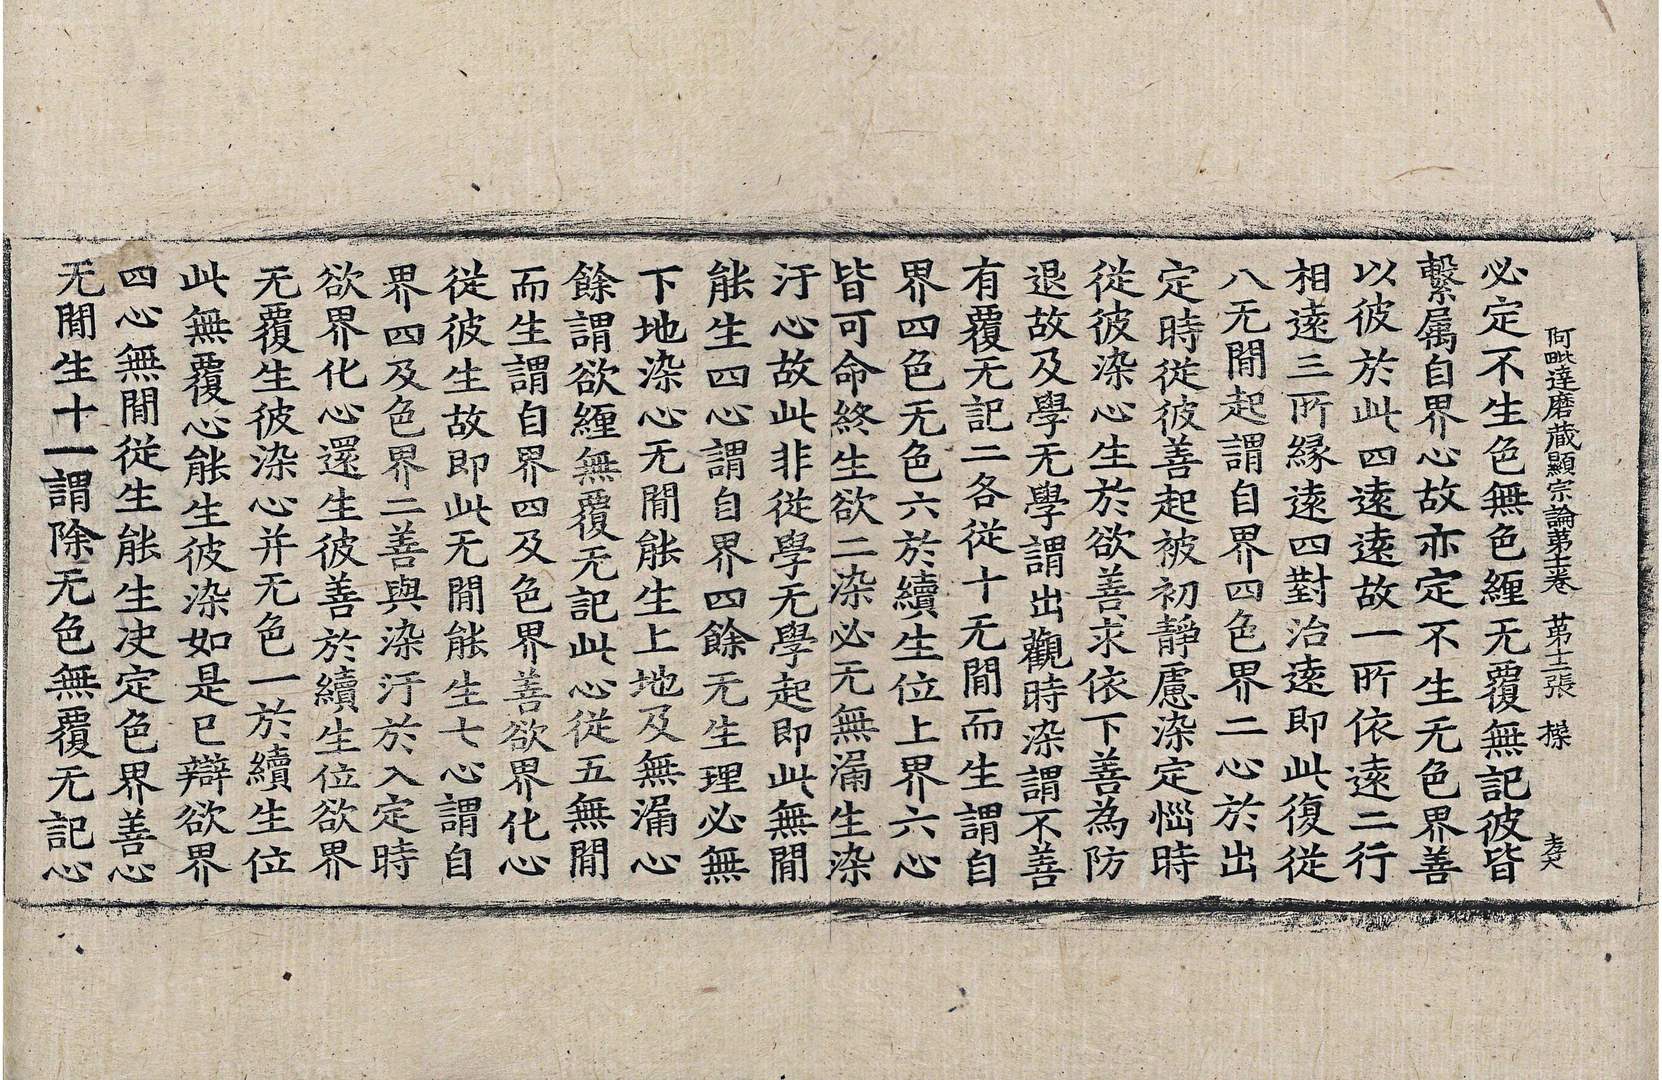 阿毗達磨藏顯宗論第十一卷 第十二張 操
必定不生色無色纒无覆無記彼皆
繫属自界心故亦定不生无色界善
以彼於此四遠遠故一所依遠二行
相遠三所緣遠四對治遠即此復從
八无間起謂自界四色界二心於出
定時從彼善起被初靜慮染定惱時
從彼染心生於欲善求依下善為防
退故及學无學謂出觀時染謂不善
有覆无記二各從十无間而生謂自
界四色无色六於續生位上界六心
皆可命終生欲二染必无無漏生染
汙心故此非從學无學起即此無間
能生四心謂自界四餘无生理必無
下地染心无間能生上地及無漏心
餘謂欲纒無覆无記此心從五無間
而生謂自界四及色界善欲界化心
從彼生故即此无間能生七心謂自
界四及色界二善與染汙於入定時
欲界化心還生彼善於續生位欲界
无覆生彼染心并无色一於續生位
此無覆心能生彼染如是已辯欲界
四心無間從生能生决定色界善心
无間生十一謂除无色無覆无記心